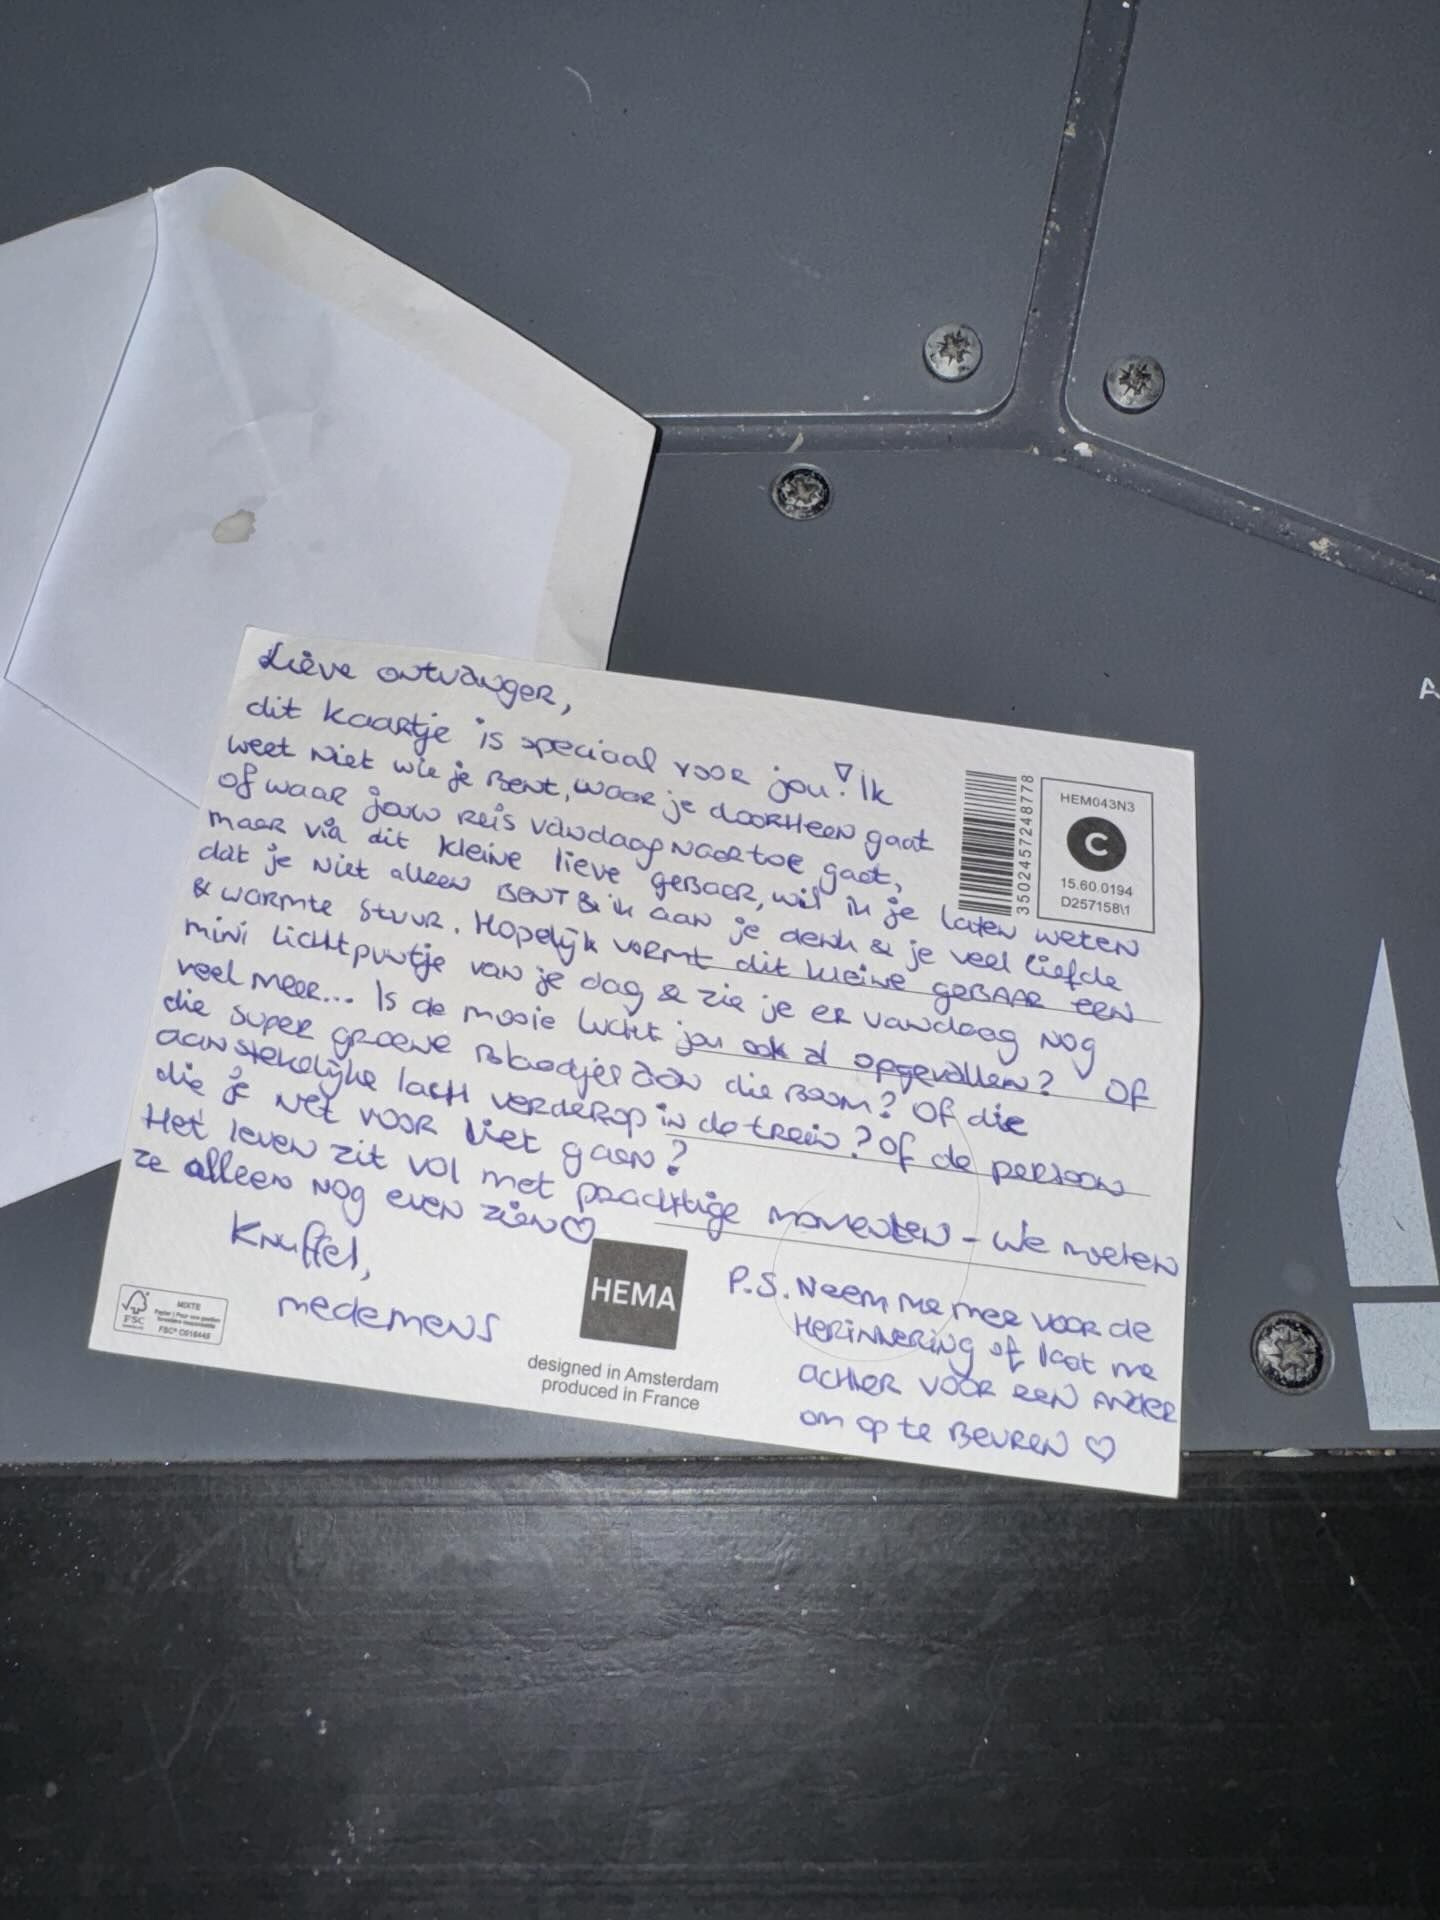 Lieve ontvanger,
dit kaartje is speciaal voor jou! Ik
weet niet wie je bent, waar je doorheen gaat
of waar jouw reis vandaag naartoe gaat,
maar via dit kleine lieve gebaar, wil ik je laten weten
dat je niet alleen bent & ik aan je denk & je veel liefde
& warmte stuur. Hopelijk vormt dit kleine gebaar een
mini lichtpuntje van je dag & zie je er vandaag nog
veel meer... Is de mooie lucht jou ook al opgevallen? Of
die super groene blaadjes aan die boom? Of die
aanstekelijke lach verderop in de trein? Of de persoon
die je net voor liet gaan?
Het leven zit vol met prachtige momenten - we moeten
ze alleen nog even zien♡
Knuffel,
medemens
P.S. Neem me mee voor de
herinnering of laat me
achter voor een ander
om op te beuren ♡
HEM043N3
C
15.60.0194
D257158\1
3502457248778
HEMA
designed in Amsterdam
produced in France
FSC
MIXTE
FSC® C016448
A